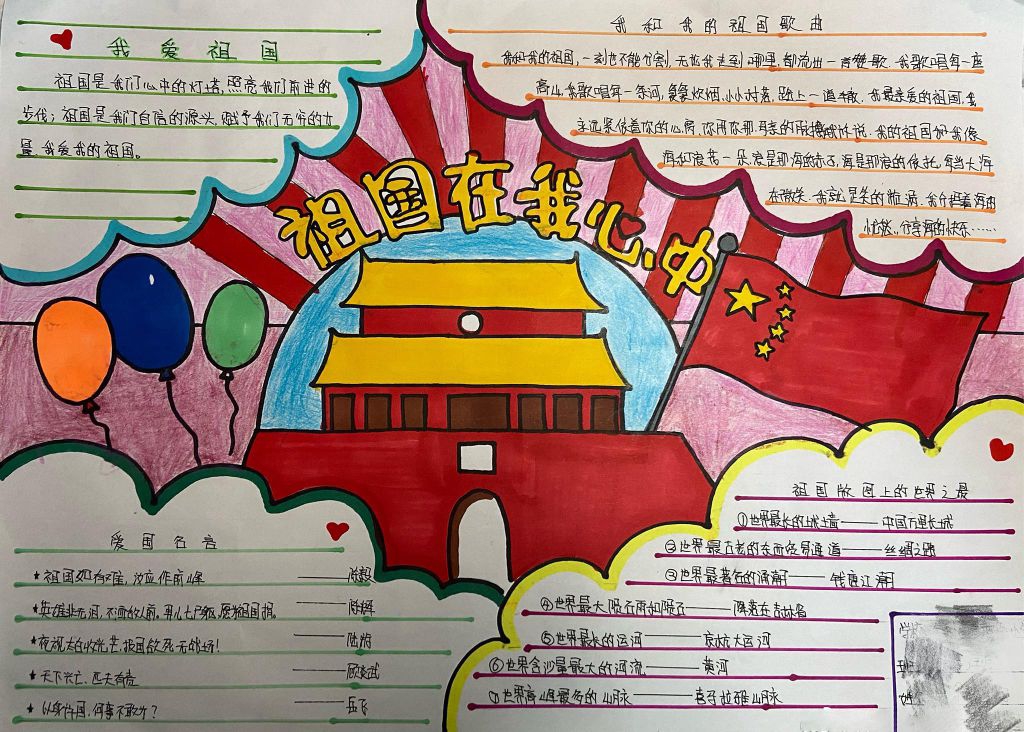 我爱祖国
祖国是我们心中的灯塔,照亮我们前进的
步伐;祖国是我们自信的源头,赋予我们无穷的力
量,我爱我的祖国。
我和我的祖国歌曲
我和我的祖国,一刻也不能分割,无论我走到哪里,都流出一首赞歌,我歌唱每一座
高山,我歌唱每一条河,袅袅炊烟,小小村落,路上一道辙,我最亲爱的祖国,我
永远紧依着你的心窝,你用你那母亲的脉搏和我说,我的祖国和我像
海和浪花一朵,浪是那海的赤子,海是那浪的依托,每当大海
在微笑,我就是笑的旋涡,我分担着海的
忧愁,分享海的快乐……
祖国在我心中
爱国名言
★祖国如有难,汝应作前峰 ——陈毅
★英雄非无泪,不洒敌人前。男儿七尺躯,愿为祖国捐。 ——陈辉
★夜视太白收光芒,报国欲死无战场! ——陆游
★天下兴亡、匹夫有责 ——顾炎武
★以身许国,何事不敢为? ——岳飞
祖国版图上的世界之最
①世界最长的城墙——中国万里长城
②世界最古老的东西贸易通道——丝绸之路
③世界最著名的涌潮——钱塘江潮
④世界最大陨石雨和陨石——降落在吉林省
⑤世界最长的运河——京杭大运河
⑥世界含沙量最大的河流——黄河
⑦世界高峰最多的山脉——喀喇拉雅山脉